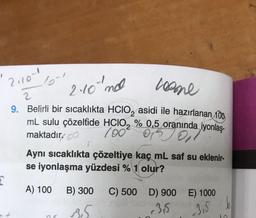 2.10⁻¹ 10⁻¹
2
2.10⁻¹ mol
9. Belirli bir sıcaklıkta HClO₂ asidi ile hazırlanan 100
mL sulu çözeltide HClO₂ % 0,5 oranında iyonlaş-
maktadır.
100
Aynı sıcaklıkta çözeltiye kaç mL saf su eklenir-
se iyonlaşma yüzdesi % 1 olur?
A) 100 B) 300 C) 500 D) 900 E) 1000
3,5 3,5